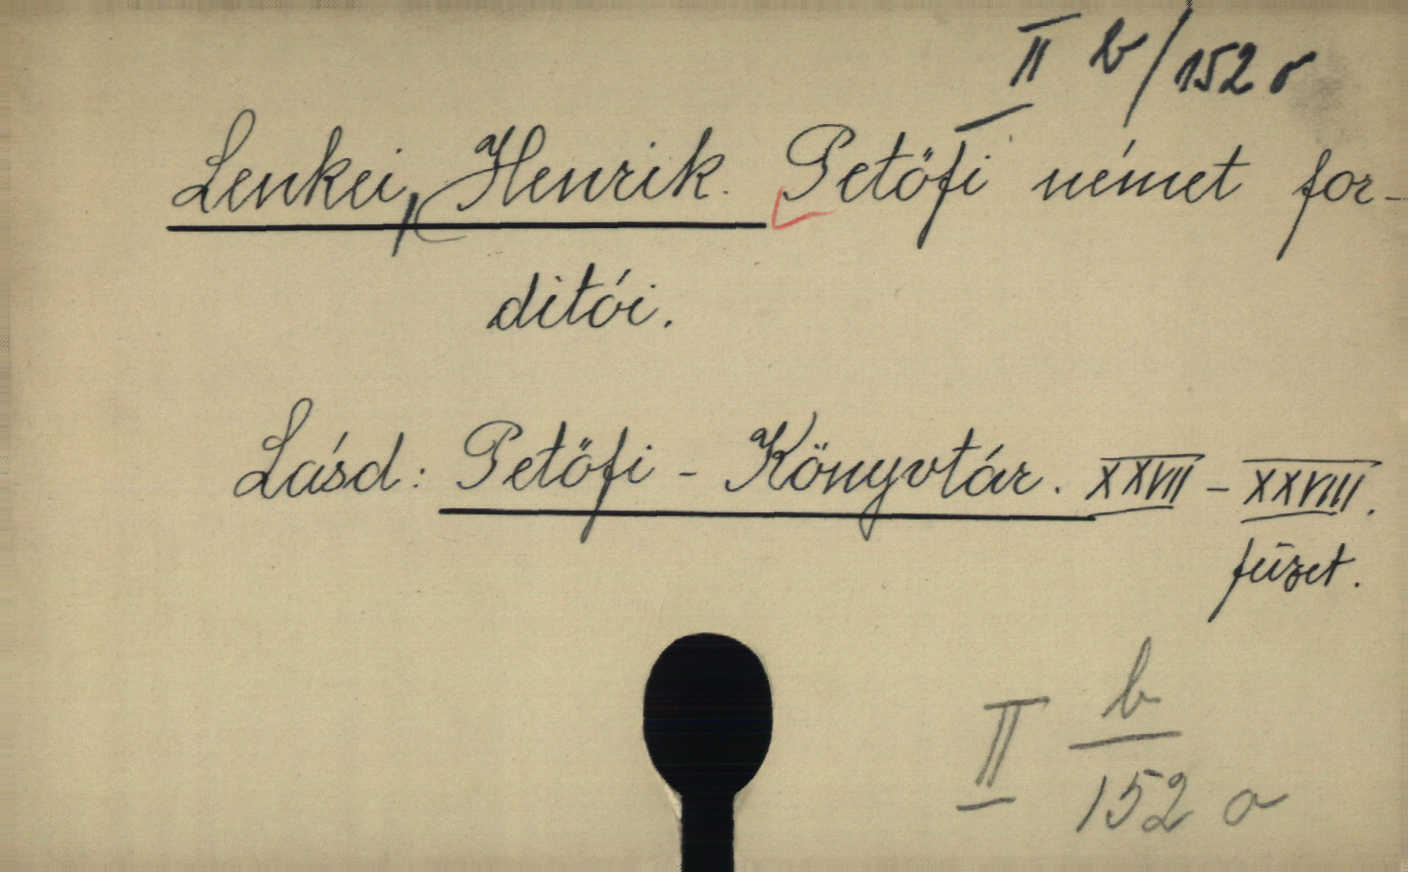 II b/152 o
Lenkei, Henrik. Petőfi német for-
ditói.
Lásd: Petőfi - Könyvtár. XXVII - XXVIII.
füzet.
II b
152 a